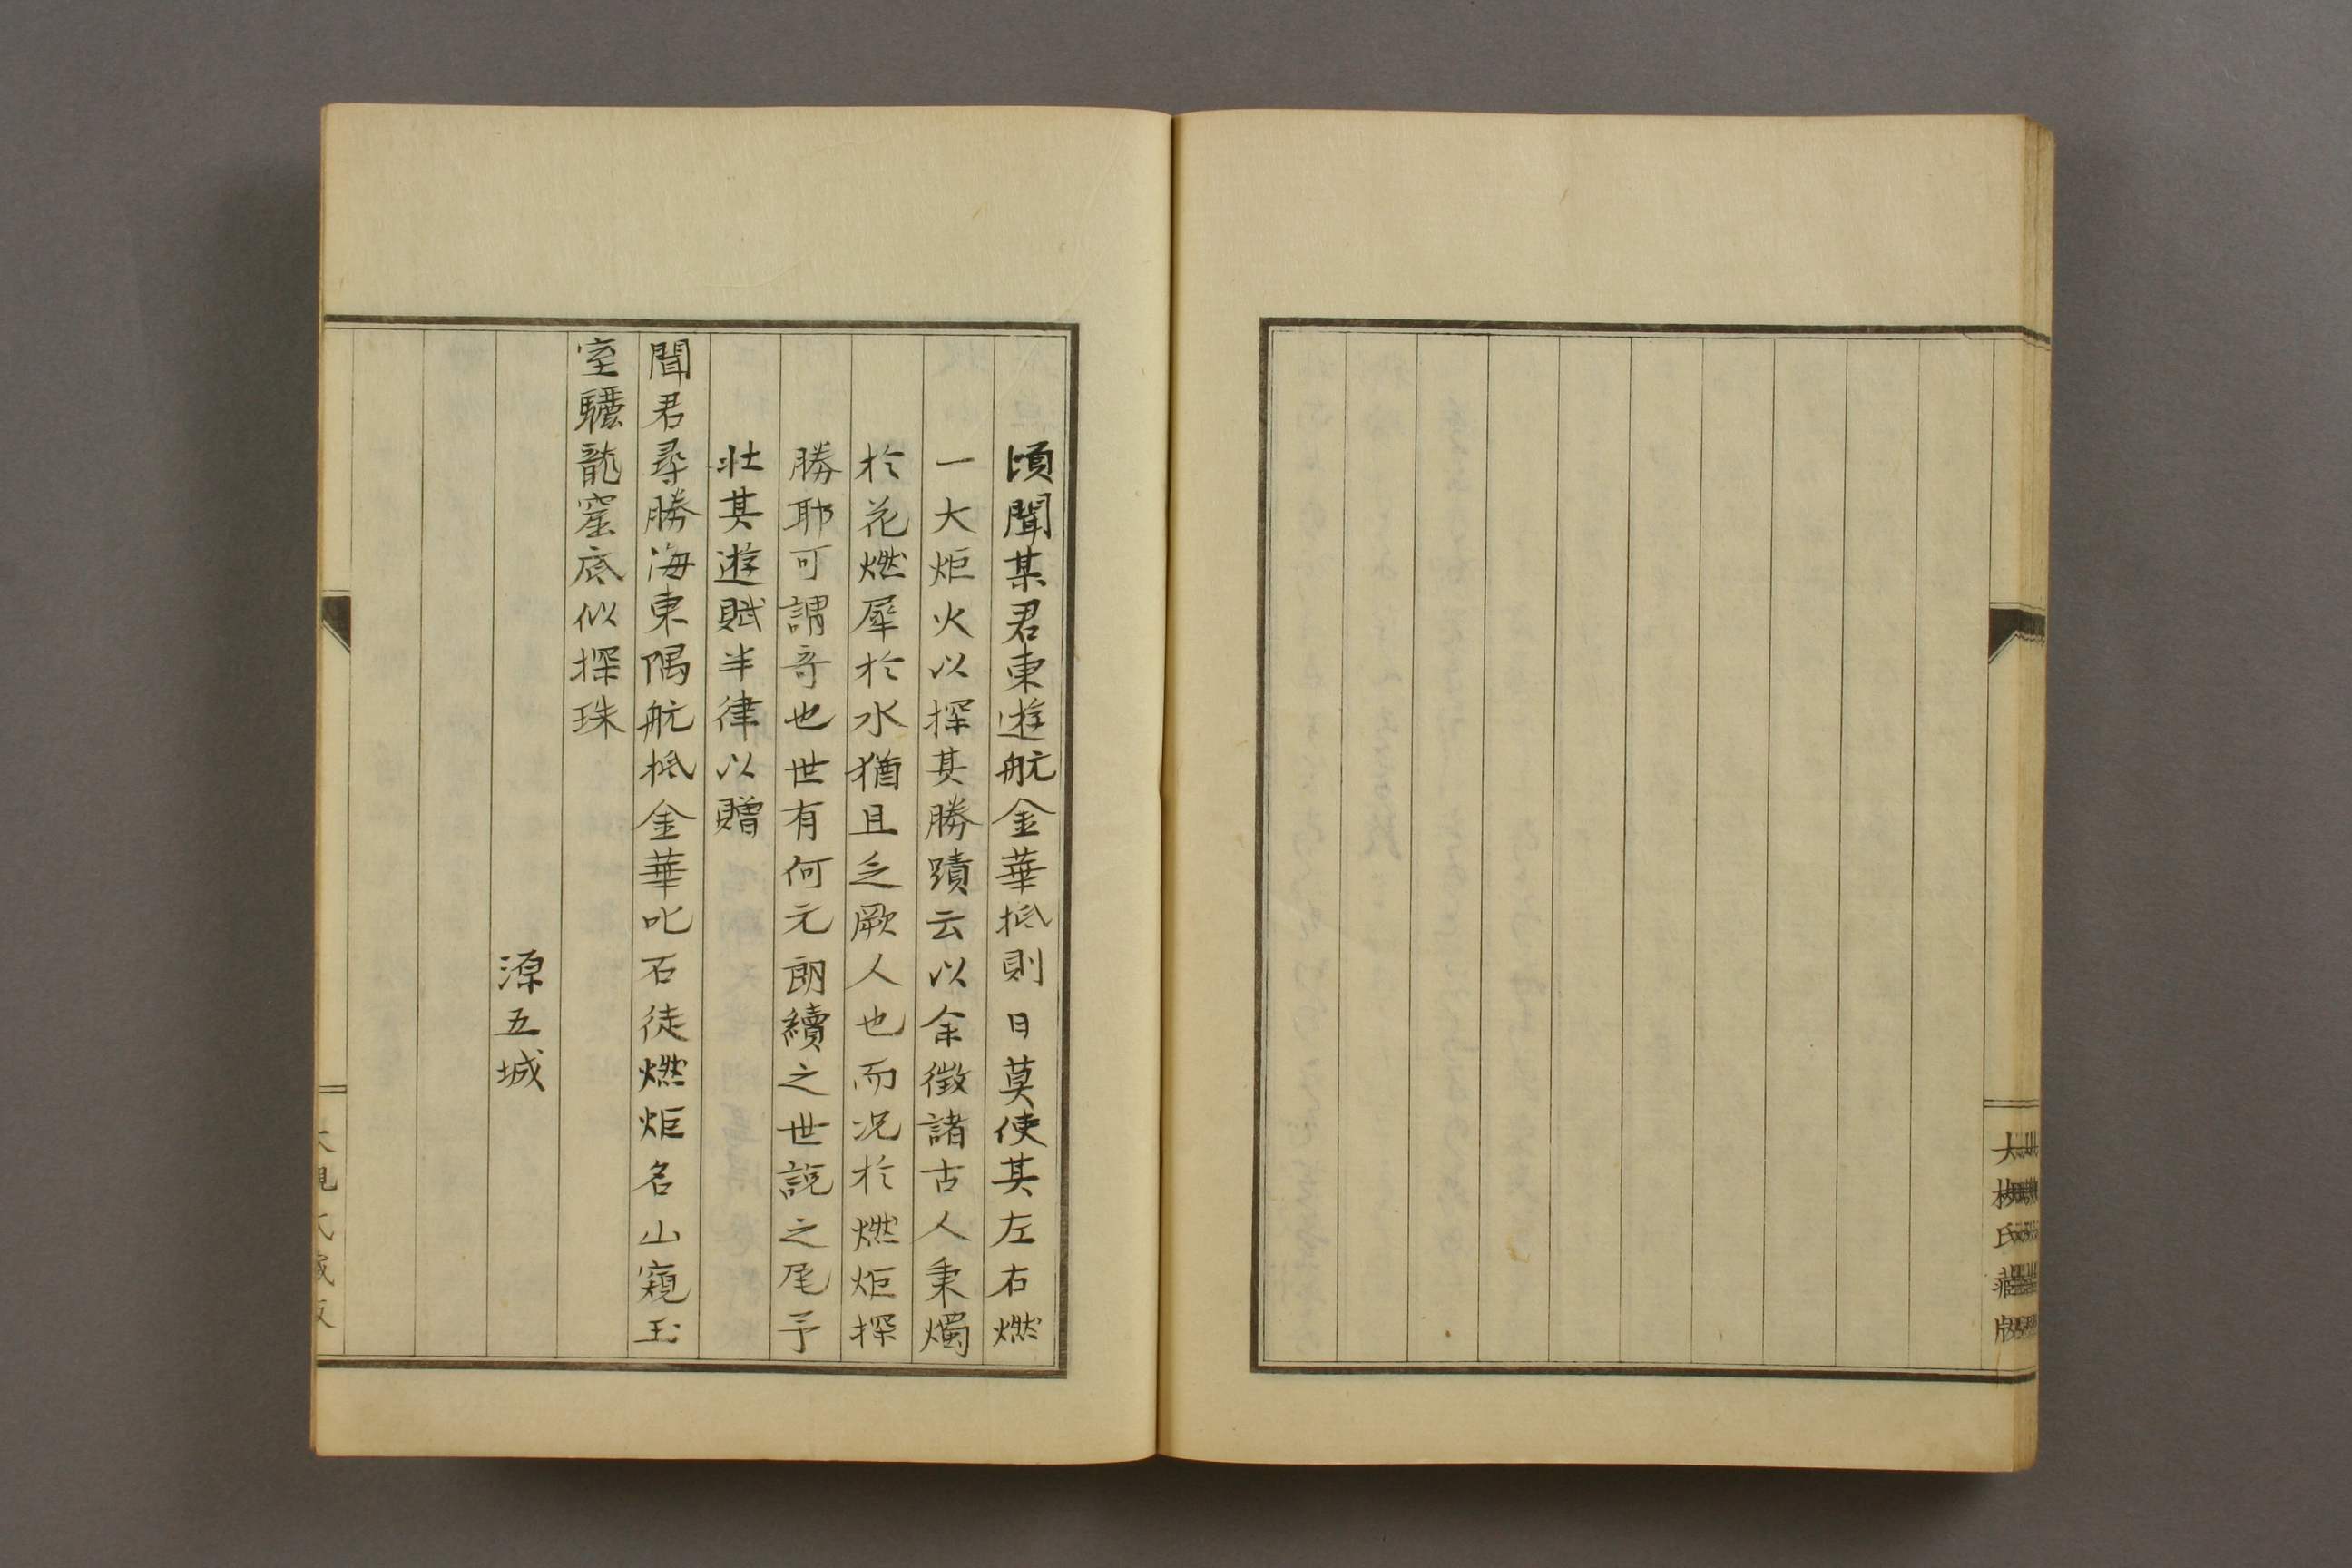 大椒氏藏版
頃聞某君東遊航金華抵則日莫使其左右燃
一大炬火以探其勝蹟云以余徵諸古人秉燭
於花燃犀於水猶且乏厥人也而况於燃炬探
勝耶可謂奇也世有何元朗續之世說之尾予
壯其遊賦半律以贈
聞君尋勝海東隅航抵金華叱石徒燃炬名山窺玉
室驪龍窟底似探珠
源五城